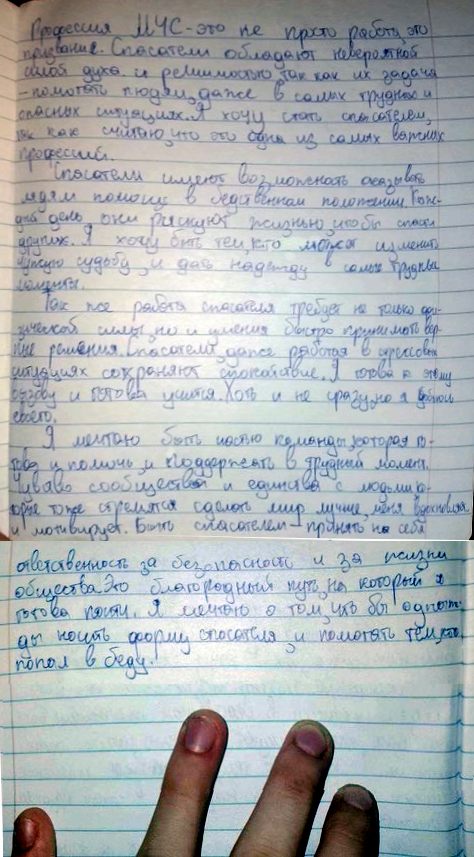 Профессия МЧС-это не просто работа, это
призвание. Спасатели обладают невероятной
силой духа и решимостью, так как их задача
- помогать людям даже в самых трудных и
опасных ситуациях. Я хочу стать спасателем,
так как считаю, что это одна из самых важных
профессий.
Спасатели имеют возможность оказывать
людям помощь в бедственном положении. Каж-
дый день они рискуют жизнью, чтобы спасти
других. Я хочу быть тем, кто может изменить
чужую судьбу, и дать надежду в самые трудные
моменты.
Так же работа спасателя требует не только фи-
зической силы, но и умения быстро принимать вер-
ные решения. Спасатели, даже работая в стрессовых
ситуациях сохраняют спокойствие. Я готова к этому
вызову и готова учится. Хоть и не сразу, но я добьюсь
своего.
Я мечтаю быть частью команды, которая го-
това и помочь и поддержать в трудный момент.
Чувство сообщества и единства с людьми, ко-
торые тоже стремятся сделать мир лучше, меня вдохновляет
и мотивирует. Быть спасателем - принять на себя
ответственность за безопасность и за жизни
общества. Это благородный путь, на который я
готова пойти. Я мечтаю о том, что бы однаж-
ды носить форму спасателя, и помогать тем, кто
попал в беду.